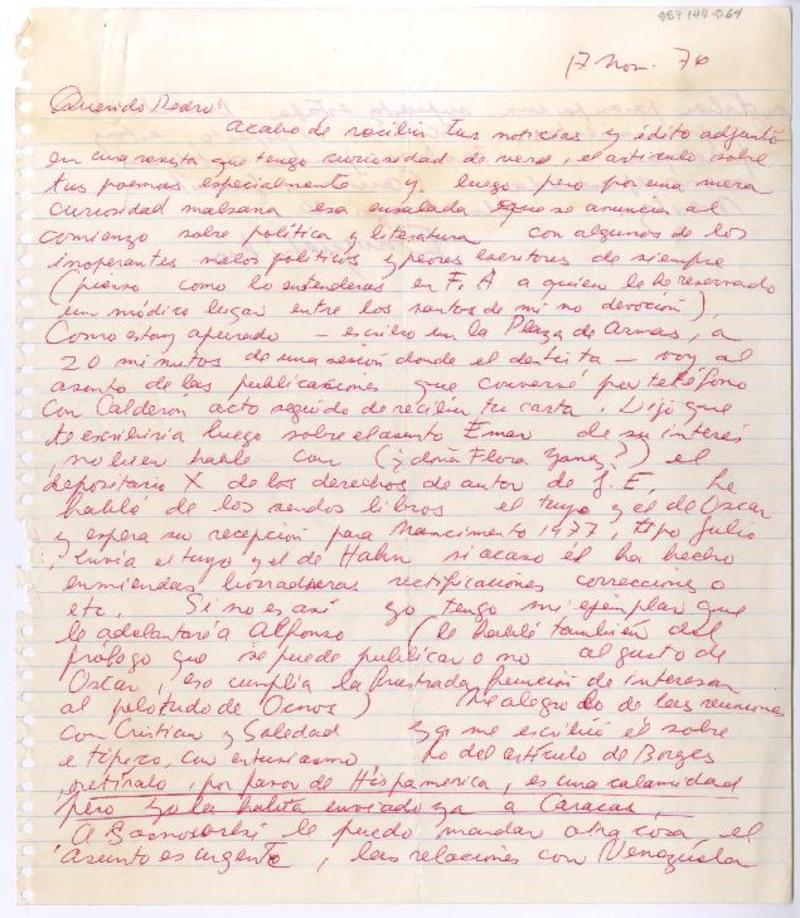 957144-064
17 Nov. 76
Querido Pedro:
acabo de recibir tus noticias y édito adjunto
en una revista que tengo curiosidad de verse, el artículo sobre
tus poemas especialmente y luego pero por una mera
curiosidad malsana esa ensalada que se anuncia al
comienzo sobre política y literatura con algunos de los
inoperantes malos políticos y peores escritores de siempre
(pienso como lo entenderás en F. A a quien le he reservado
un módico lugar entre los santos de mi no devoción),
Como estoy apurado — escribo en la Plaza de Armas, a
20 minutos de una sesión donde el dentista — voy al
asunto de las publicaciones que conversé por teléfono
con Calderón acto seguido de recibir tu carta. Dijo que
te escribiría luego sobre el asunto Emar de su interés
no bien hable con (¿y doña Flora Yañez?) el
depositario X de los derechos de autor de J. E, le
hablé de los sendos libros el tuyo y el de Oscar
y espera su recepción para Nascimento 1977, tipo Julio
, envía el tuyo y el de Hahn si acaso él ha hecho
enmiendas borraduras rectificaciones correcciones o
etc. Si no es así yo tengo mi ejemplar que
le adelantaré a Alfonso (le hablé también del
prólogo que se puede publicar o no al gusto de
Oscar, eso cumplía la frustrada función de interesar
al pelotudo de Ocnos) Me alegro lo de las reuniones
con Cristian y Soledad ya me escribió él sobre
e típico, con entusiasmo. Lo del artículo de Borges
, retíralo, por favor de Hispamerica, es una calamidad
pero yo la había enviado ya a Caracas,
A Sosnowski le puedo mandar otra cosa, el
asunto es urgente, las relaciones con Venezuela